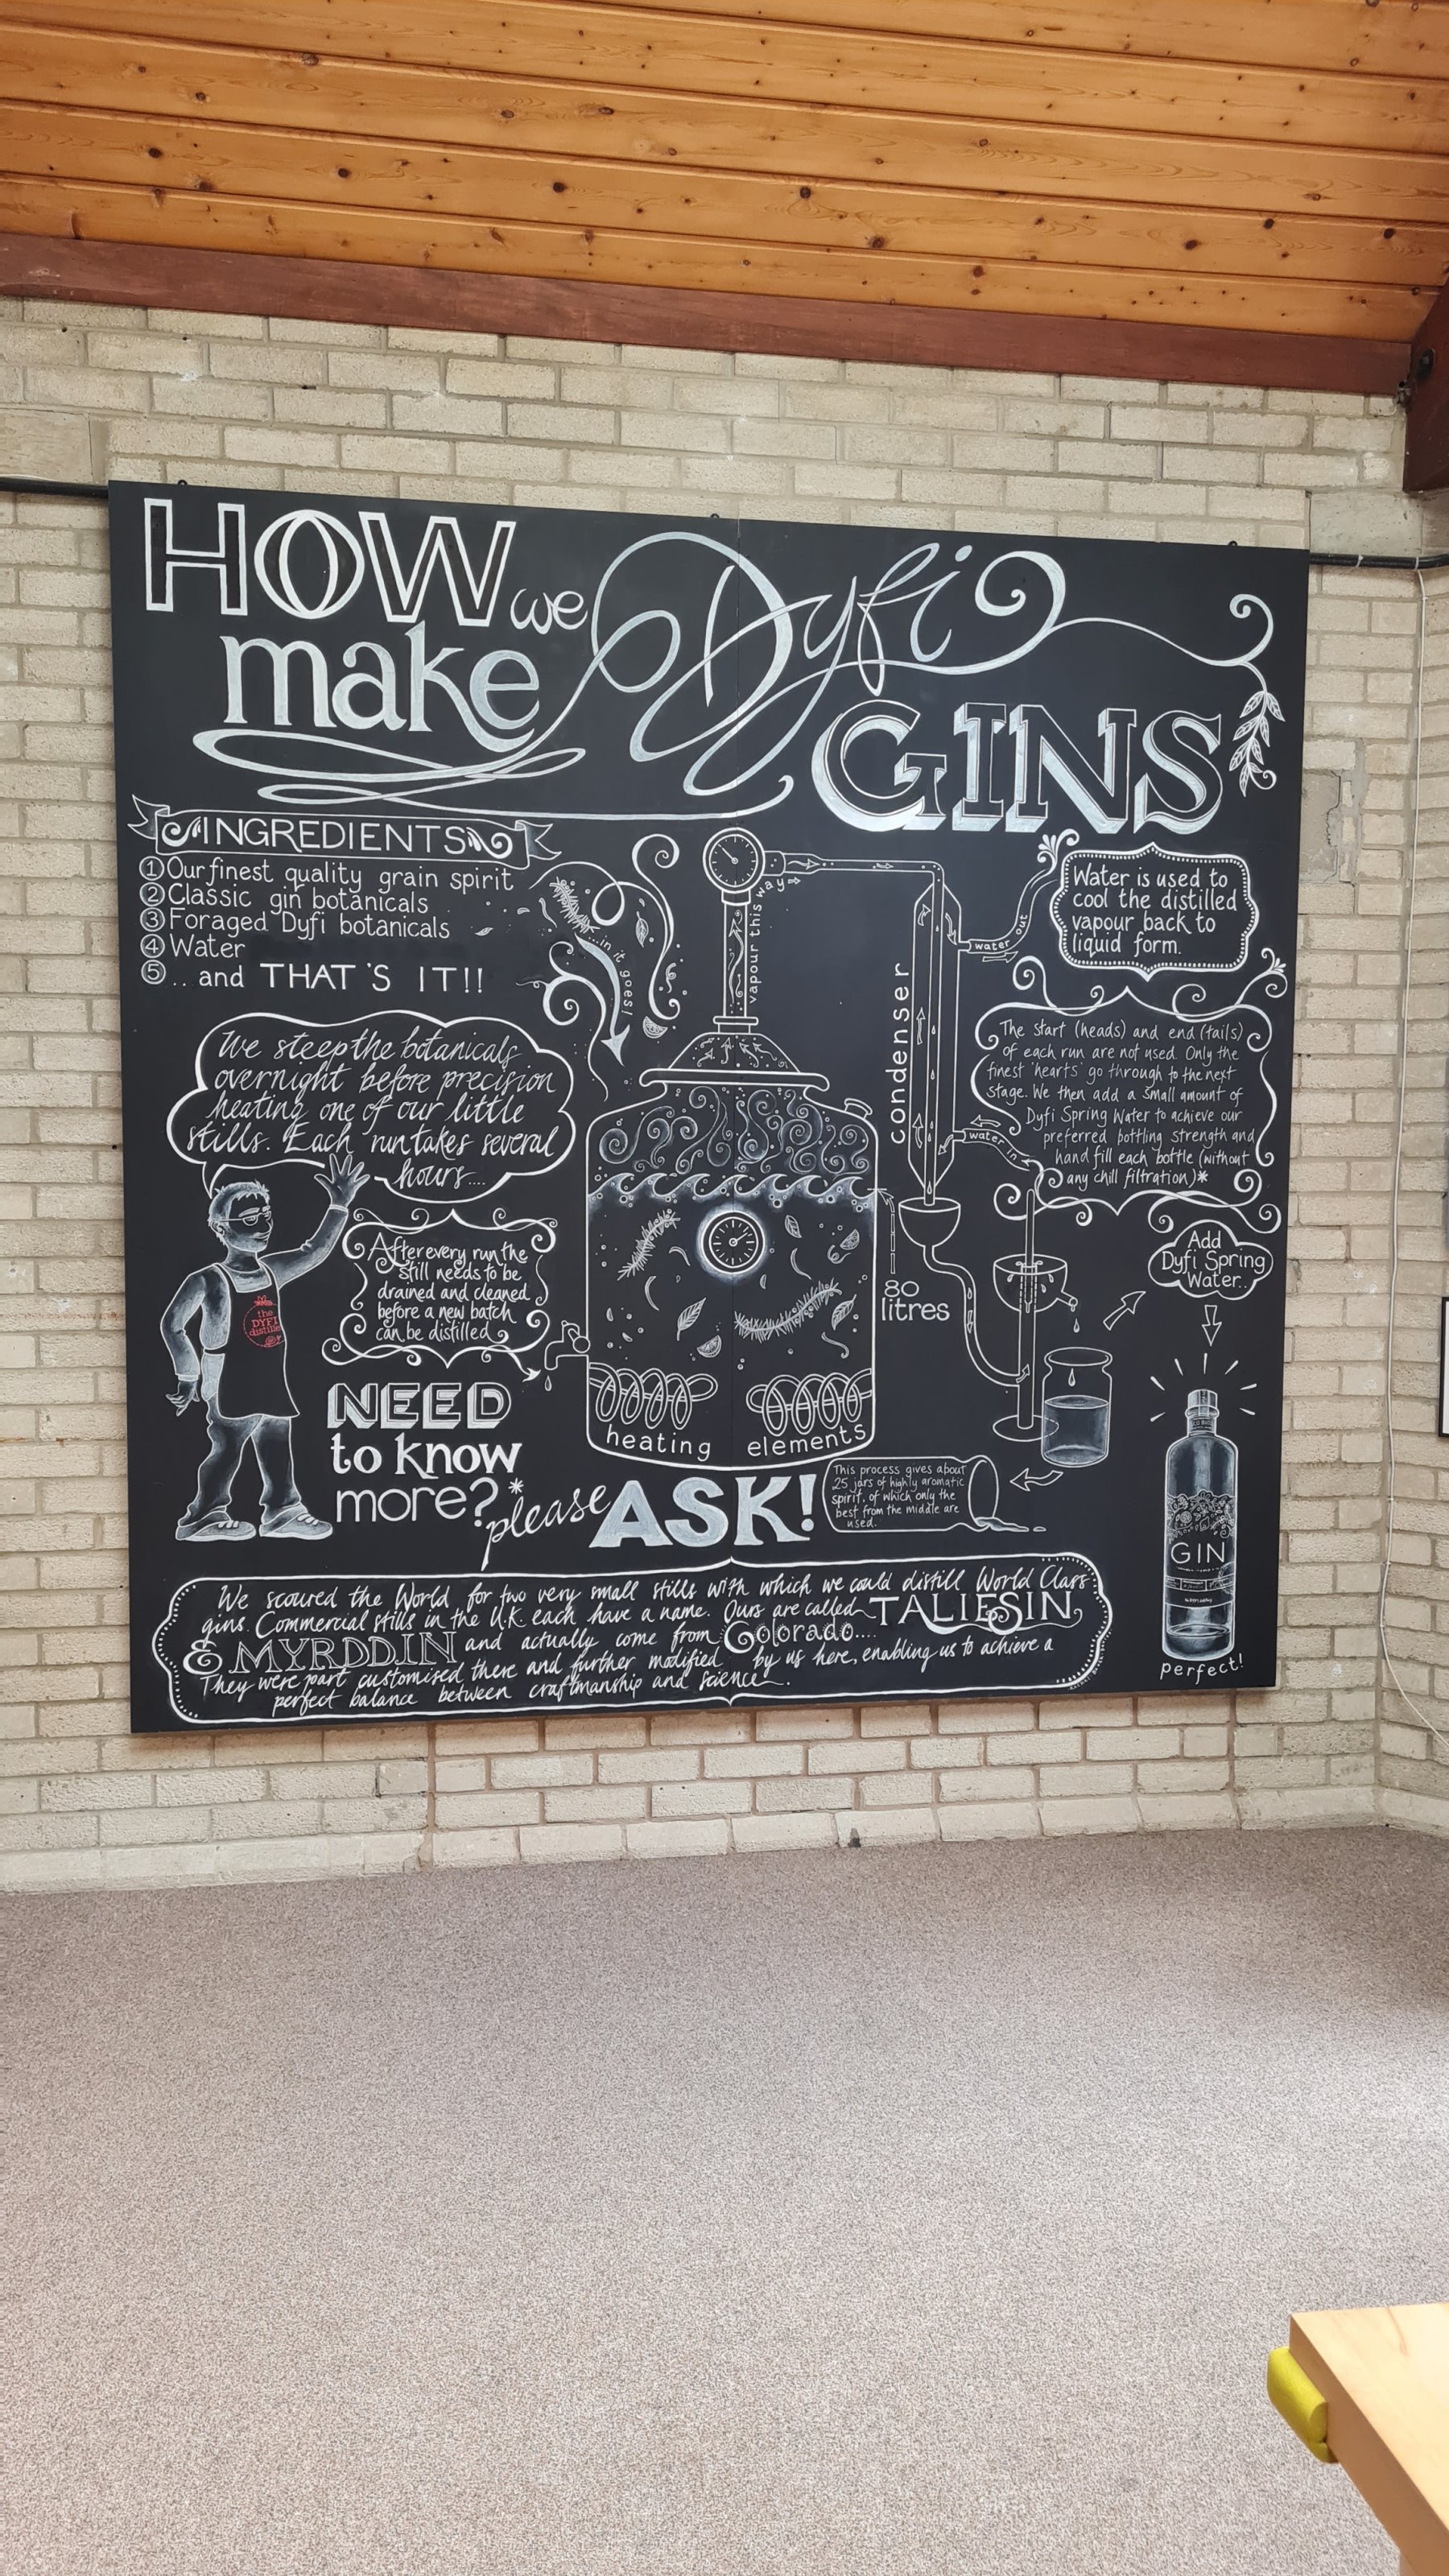 HOW we
make Dyfi
GINS
INGREDIENTS
① Our finest quality grain spirit
② Classic gin botanicals
③ Foraged Dyfi botanicals
④ Water
⑤ ...and THAT'S IT!!
...in it goes!
vapour this way
condenser
water out
Water is used to
cool the distilled
vapour back to
liquid form.
We steep the botanicals
overnight before precision
heating one of our little
stills. Each run takes several
hours....
The start (heads) and end (tails)
of each run are not used. Only the
finest 'hearts' go through to the next
stage. We then add a small amount of
Dyfi Spring Water to achieve our
preferred bottling strength and
hand fill each bottle (without
any chill filtration)*
water in
After every run the
still needs to be
drained and cleaned
before a new batch
can be distilled
the
DYFI
distillery
80
litres
Add
Dyfi Spring
Water..
heating elements
NEED
to know
more?* please ASK!
This process gives about
25 jars of highly aromatic
spirit, of which only the
best from the middle are
used.
GIN
perfect!
We scoured the World for two very small stills with which we could distill World Class
gins. Commercial stills in the U.K. each have a name. Ours are called TALIESIN
& MYRDDIN and actually come from Colorado....
They were part customised there and further modified by us here, enabling us to achieve a
perfect balance between craftmanship and science.